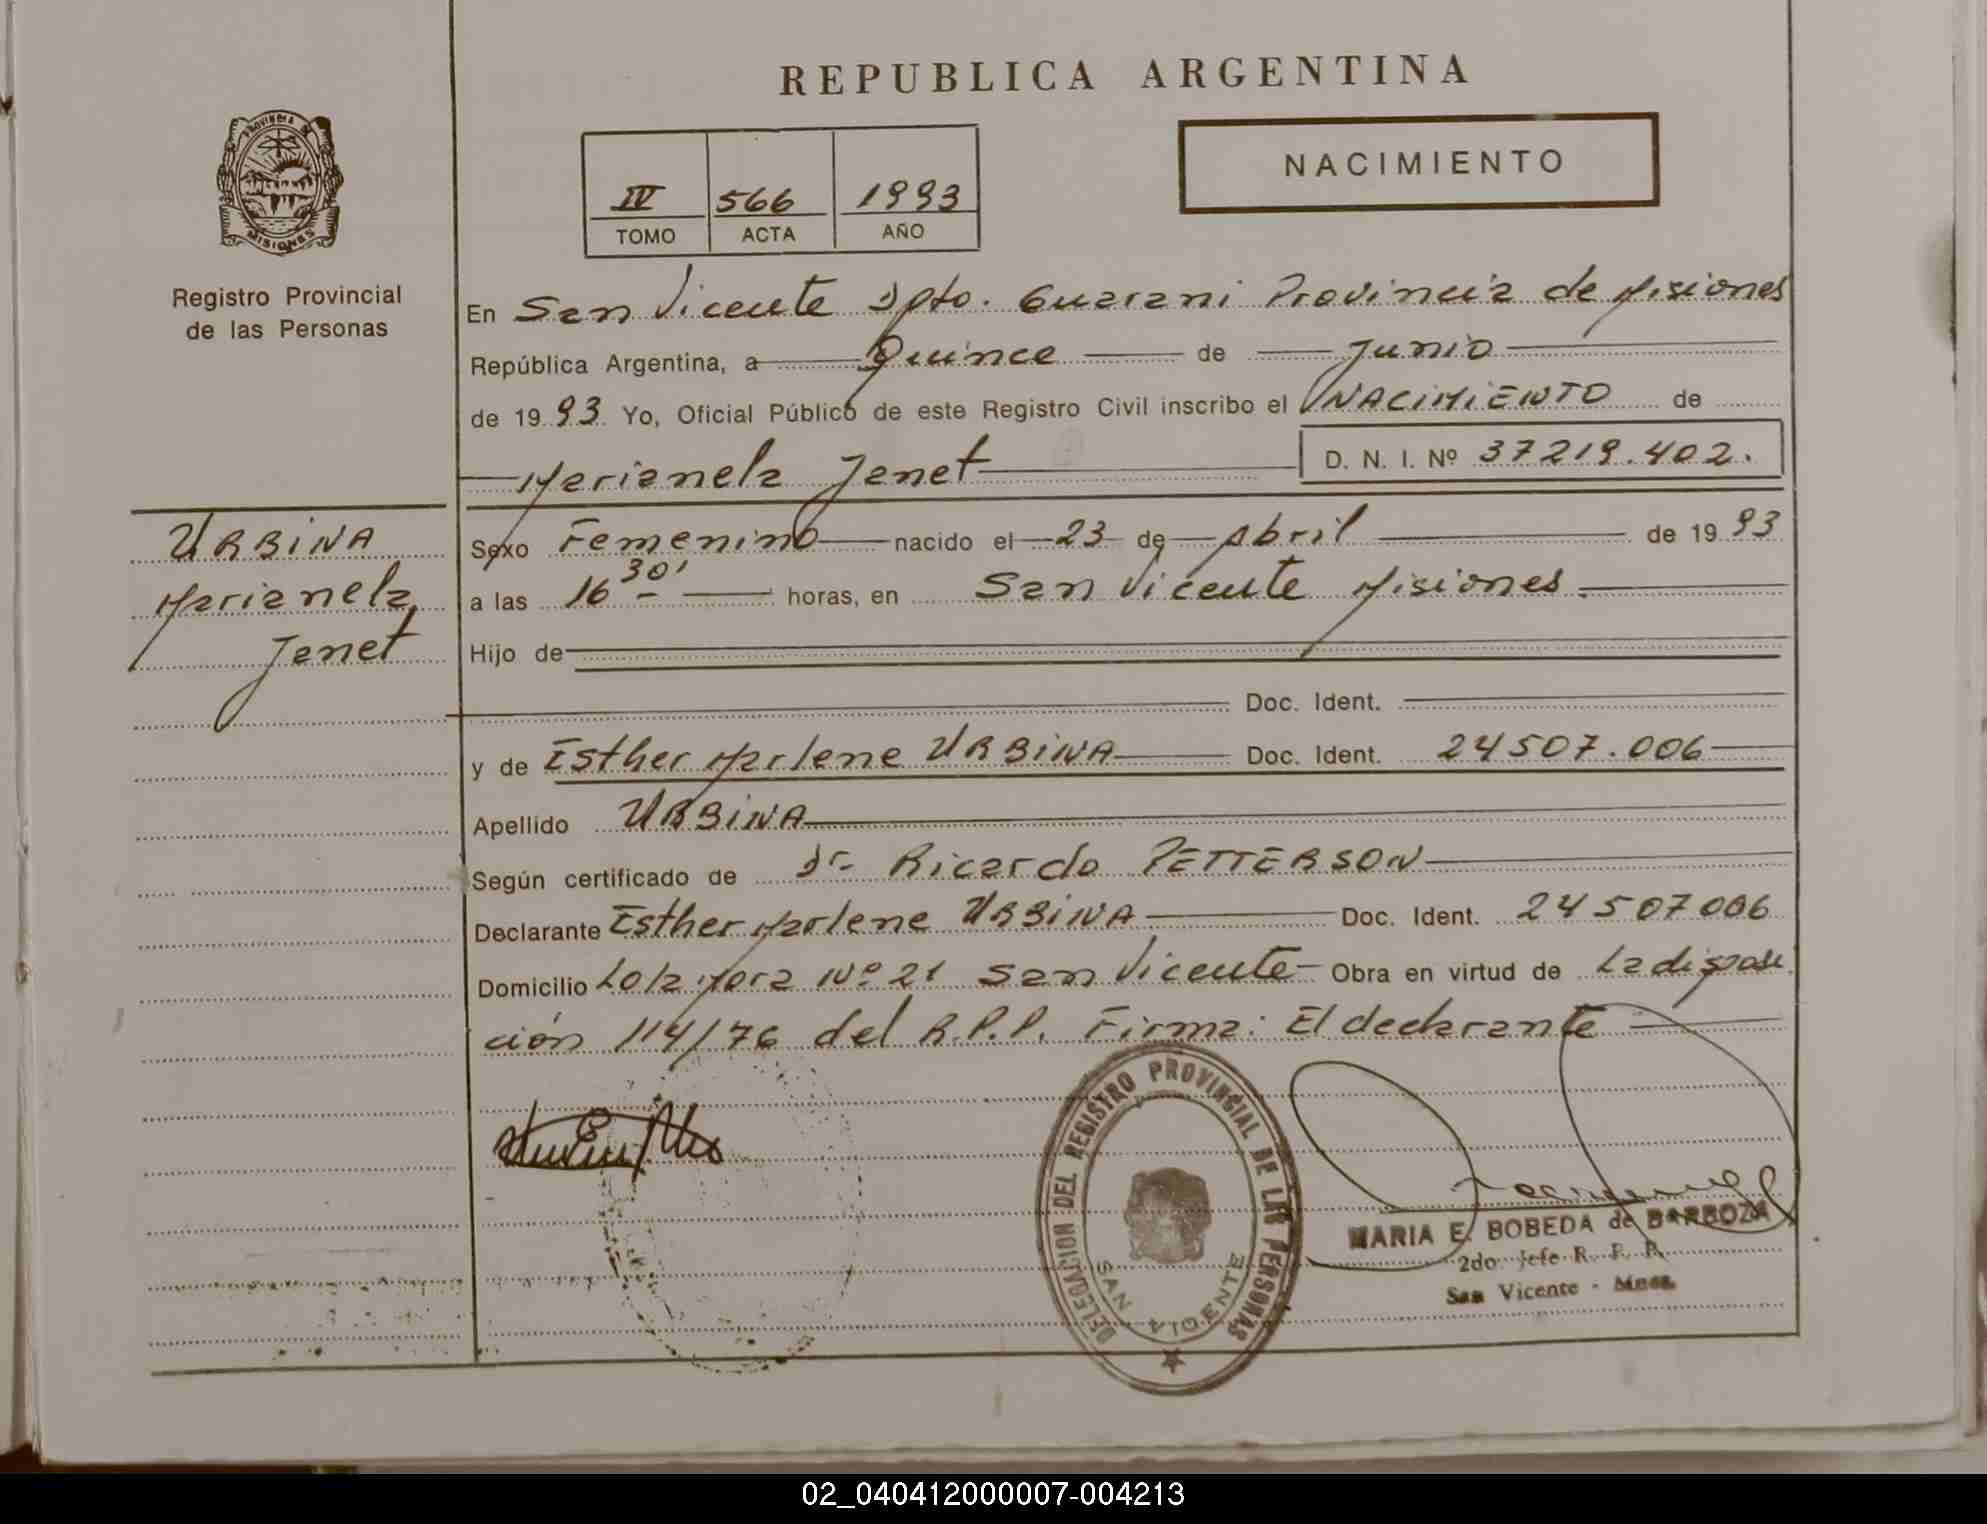 REPUBLICA ARGENTINA
PROVINCIA DE
MISIONES
Registro Provincial
de las Personas
IV 566 1993
TOMO ACTA AÑO
NACIMIENTO
En San Vicente Dpto. Guarani Provincia de Misiones
República Argentina, a Quince de Junio
de 1993 Yo, Oficial Público de este Registro Civil inscribo el NACIMIENTO de
Marianela Janet D. N. I. Nº 37219.402.
URBINA
Marianela
Janet
Sexo Femenino nacido el 23 de Abril de 1993
a las 16 30' horas, en San Vicente Misiones.
Hijo de
Doc. Ident.
y de Esther Marlene URBINA Doc. Ident. 24507.006
Apellido URBINA
Según certificado de Dr Ricardo PETTERSON
Declarante Esther Marlene URBINA Doc. Ident. 24507006
Domicilio Lola Mora Nº 21 San Vicente Obra en virtud de La disposi
ción 114/76 del R.P.P. Firma: El declarante
DELEGACION DEL REGISTRO PROVINCIAL DE LAS PERSONAS
SAN VICENTE
MARIA E. BOBEDA de BARBOZA
2do. Jefe R. P. P.
San Vicente - Mnes.
02_040412000007-004213